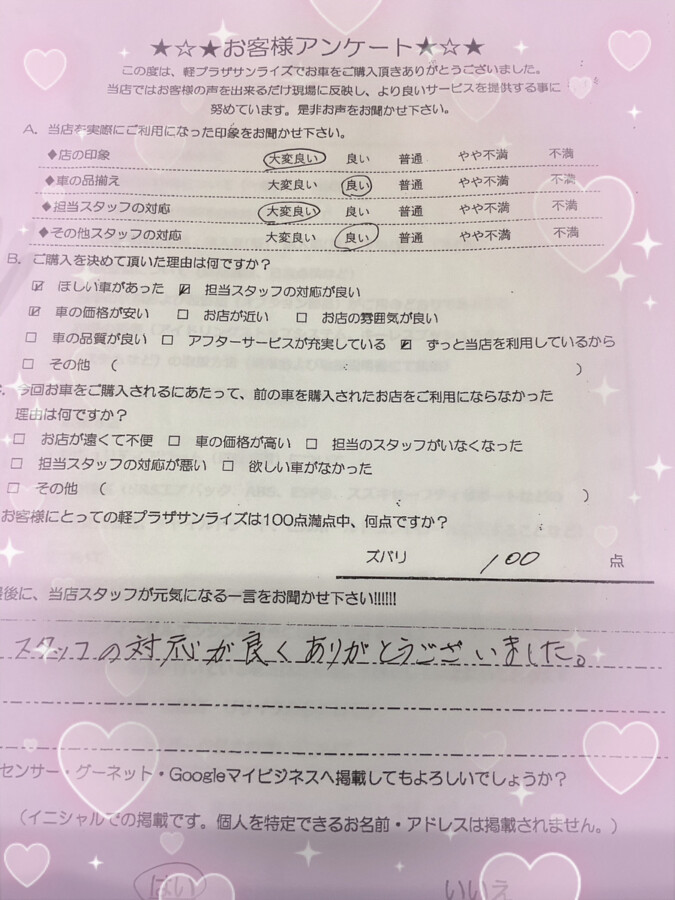 ★☆★お客様アンケート★☆★
この度は、軽プラザサンライズでお車をご購入頂きありがとうございました。
当店ではお客様の声を出来るだけ現場に反映し、より良いサービスを提供する事に
努めています。是非お声をお聞かせ下さい。
A. 当店を実際にご利用になった印象をお聞かせ下さい。
◆店の印象 大変良い 良い 普通 やや不満 不満
◆車の品揃え 大変良い 良い 普通 やや不満 不満
◆担当スタッフの対応 大変良い 良い 普通 やや不満 不満
◆その他スタッフの対応 大変良い 良い 普通 やや不満 不満
B. ご購入を決めて頂いた理由は何ですか？
☑ ほしい車があった ☑ 担当スタッフの対応が良い
☑ 車の価格が安い □ お店が近い □ お店の雰囲気が良い
□ 車の品質が良い □ アフターサービスが充実している ☑ ずっと当店を利用しているから
□ その他 （ ）
今回お車をご購入されるにあたって、前の車を購入されたお店をご利用にならなかった
理由は何ですか？
□ お店が遠くて不便 □ 車の価格が高い □ 担当のスタッフがいなくなった
□ 担当スタッフの対応が悪い □ 欲しい車がなかった
□ その他 （ ）
お客様にとっての軽プラザサンライズは100点満点中、何点ですか？
ズバリ 100 点
最後に、当店スタッフが元気になる一言をお聞かせ下さい!!!!!!
スタッフの対応が良くありがとうございました。
センサー・グーネット・Googleマイビジネスへ掲載してもよろしいでしょうか？
（イニシャルでの掲載です。個人を特定できるお名前・アドレスは掲載されません。）
はい いいえ